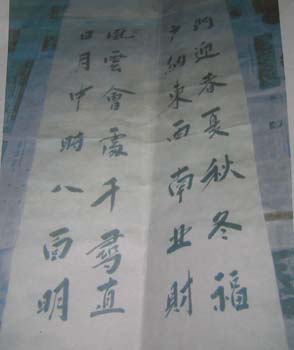 門迎春夏秋冬福
户納東西南北財
風雲會處千尋直
日月中時八面明